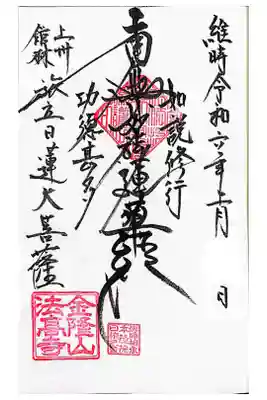 維時令和六年十一月 日
如説修行
南無妙法蓮華経
功徳甚多
旅立日蓮大菩薩
上州
館林
金隆山
法高寺